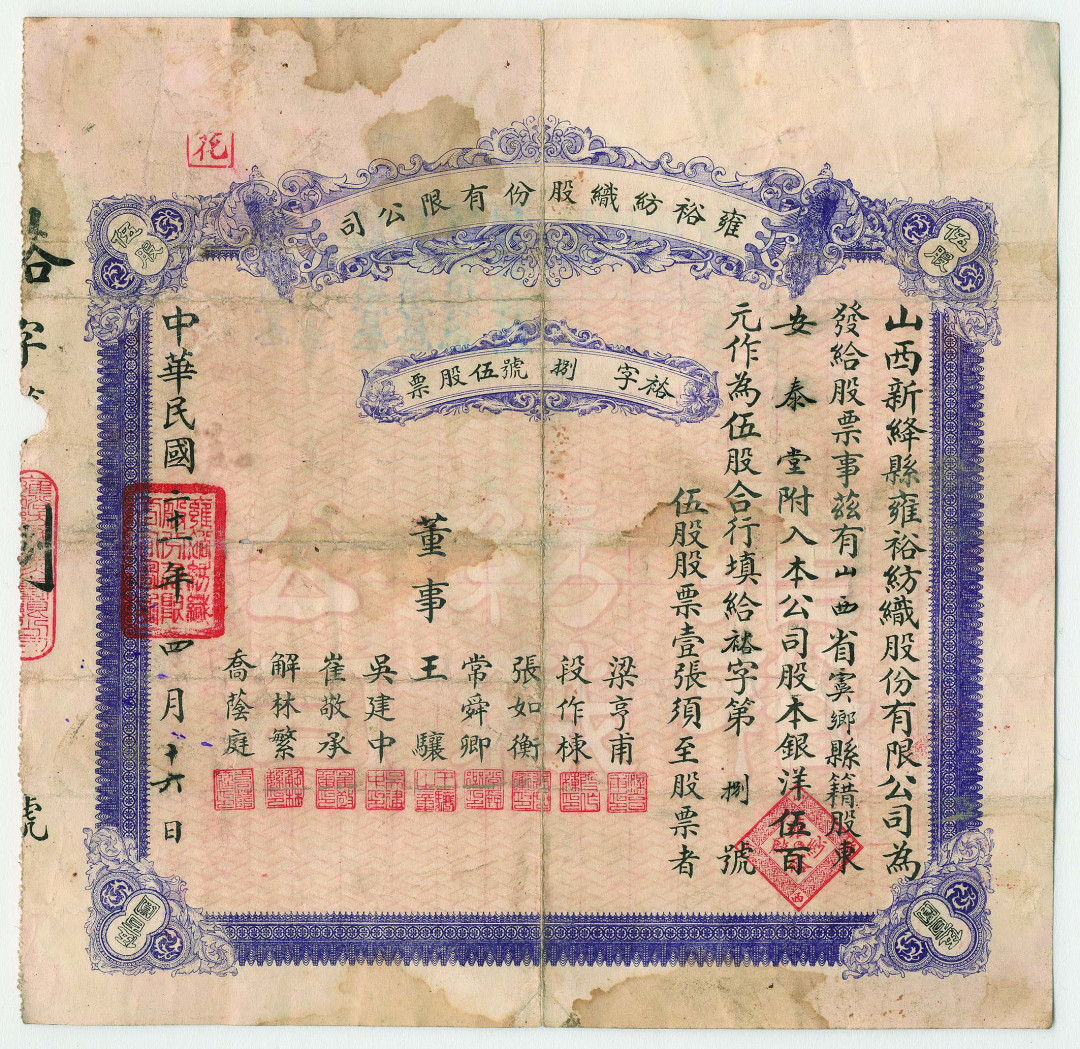 雍裕紡織股份有限公司
伍股
伍股
裕字捌號伍股票
山西新絳縣雍裕紡織股份有限公司為
發給股票事茲有山西省虞鄉縣籍股東
安泰堂附入本公司股本銀洋伍百
元作為伍股合行填給裕字第捌號
伍股股票壹張須至股票者
董事
梁亨甫
段作棟
張如衡
常舜卿
王驤
吳建中
崔敬承
解林繁
喬蔭庭
中華民國二十一年四月十六日
裕字
捌
號